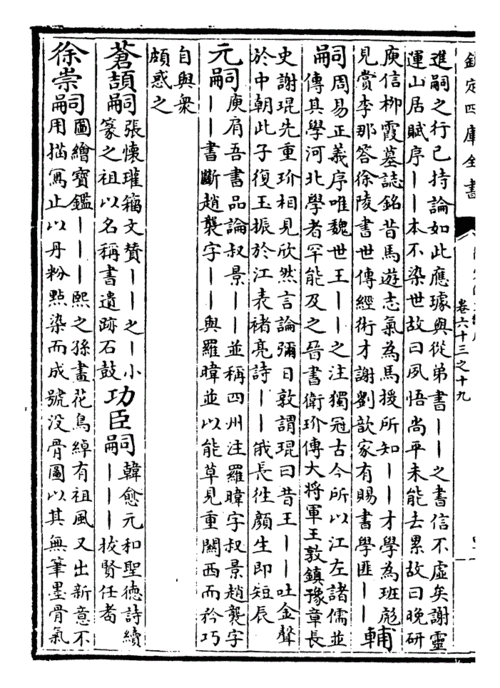 欽定四庫全書
卷六十三之十九
進嗣之行已持論如此應璩與從弟書||之書信不虛矣謝靈
運山居賦序||本不染世故曰夙悟尚平未能去累故曰晚研
庾信柳霞墓誌銘昔馬遊志氣為馬援所知||才學為班彪
見賞李那答徐陵書世傳經術才謝劉歆家有賜書學匪||
輔
嗣
周易正義序唯魏世王||之注獨冠古今所以江左諸儒並
傳其學河北學者罕能及之晉書衛玠傳大將軍王敦鎮豫章長
史謝琨先重玠相見欣然言論彌日敦謂琨曰昔王||吐金聲
於中朝此子復玉振於江表褚亮詩||俄長往顏生即短辰
元嗣
庾肩吾書品論叔景||並稱四州注羅暉字叔景趙襲字
||書斷趙襲字||與羅暉並以能草見重關西而矜巧
自與衆
頗惑之
蒼頡嗣
張懷瓘籀文贊||之|小
篆之祖以名稱書遺跡石鼓
功臣嗣
韓愈元和聖德詩續
|||拔賢任耆
徐崇嗣
圖繪寶鑑|||熙之孫畫花鳥綽有祖風又出新意不
用描寫止以丹粉點染而成號没骨圖以其無筆墨骨氣